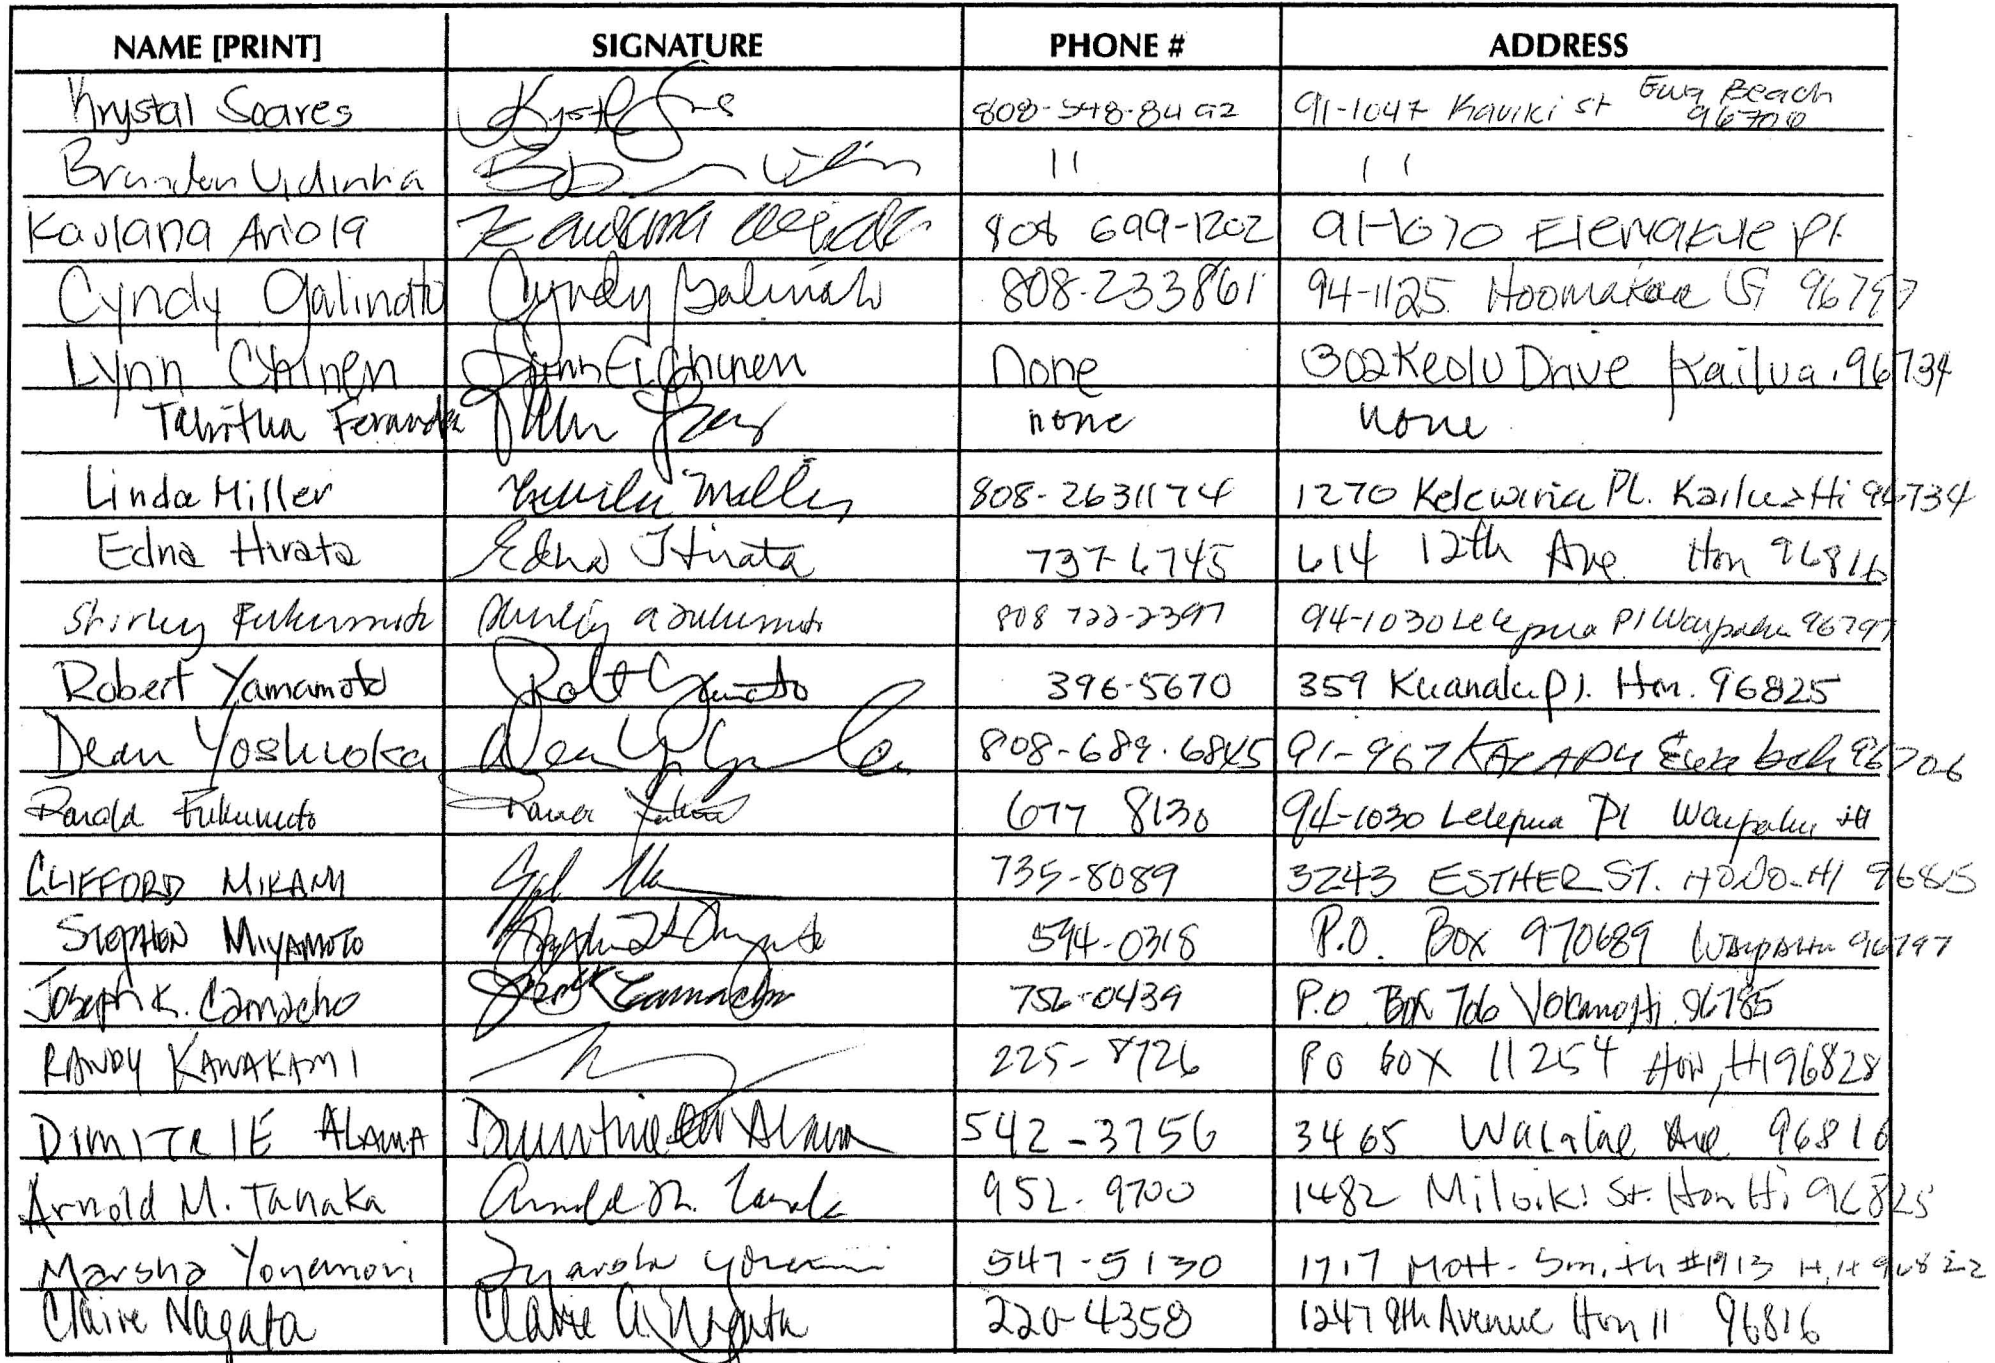 NAME [PRINT] SIGNATURE PHONE # ADDRESS
Krystal Soares 808-548-8492 91-1047 Kaviki St Ewa Beach 96706
Brandon Vidinha 11 11
Kaulana Ariola Kaulana Ariola 808 699-1202 91-1070 Elemakule Pl.
Cyndy Galinato Cyndy Galinato 808-233861 94-1125 Hoomakoa St 96797
Lynn Chinen Lynn E. Chinen none 1302 Keolu Drive Kailua. 96734
Tabitha none none
Linda Miller Linda Miller 808-2631174 1270 Pl. Kailua Hi 96734
Edna Hirata Edna Hirata 737-6745 614 12th Ave. Hon 96816
Shirley Fukumoto Shirley A Fukumoto 808 722-2397 94-1030 Lelepua Pl Waipahu 96797
Robert Yamamoto 396-5670 359 Kuanalu Pl. Hon. 96825
Dean Yoshioka 808-689.6845 91-967 Ewa bch 96706
Ronald Fukumoto 677 8130 94-1030 Lelepua Pl Waipahu HI
CLIFFORD MIKAMI 735-8089 3243 ESTHER ST. HONO. HI 96815
STEPHEN MIYAMOTO 594-0318 P.O. Box 970689 WAIPAHU 96797
Joseph K. Camacho Joseph K Camacho 756-0439 P.O Box 706 Volcano, Hi. 96785
RANDY KAWAKAMI 225-8726 PO BOX 11254 HON, HI 96828
DIMITRIE ALAMA Alama 542-3756 3465 Waialae Ave 96816
Arnold M. Tanaka Arnold M. Tanaka 952-9700 1482 Miloiki St. Hon Hi 96825
Marsha Yonemori Marsha Yonemori 547-5130 1717 Mott-Smith #1913 H, H 96822
Claire Nagata Claire A. Nagata 220-4358 1247 9th Avenue Hon 11 96816